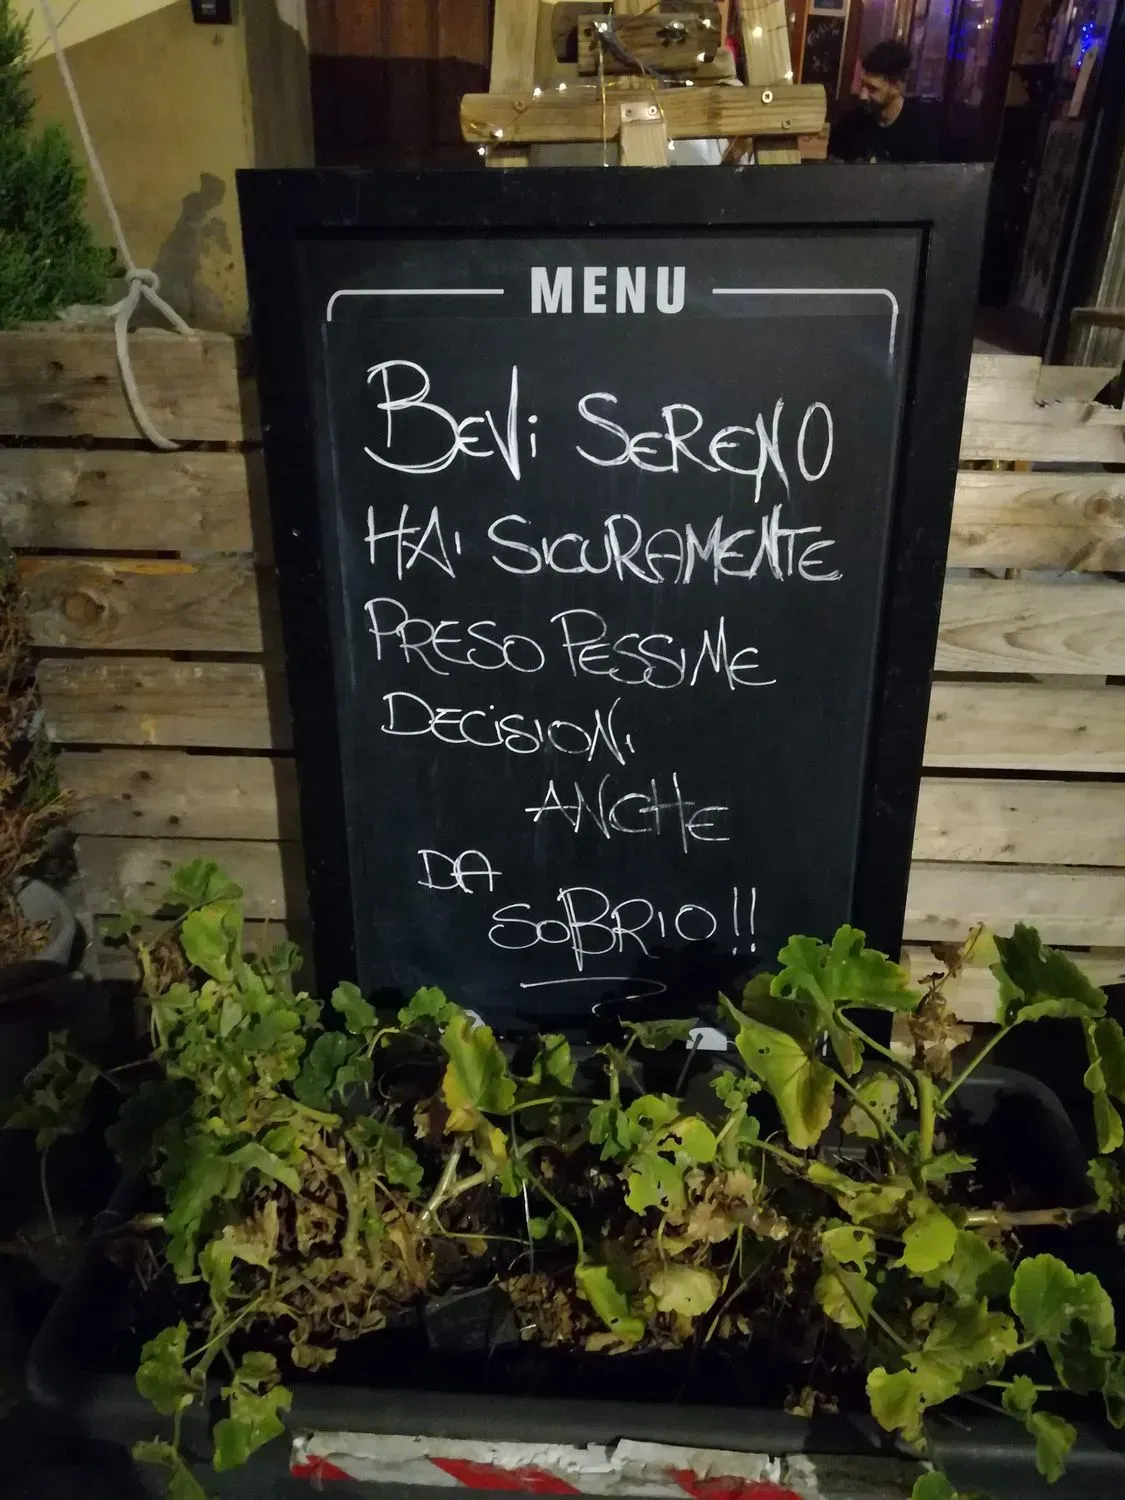 MENU
BEVi SERENO
HAi SICURAMENTE
PRESO PESSIME
DECiSIONi
ANCHE
DA
SOBRIO!!